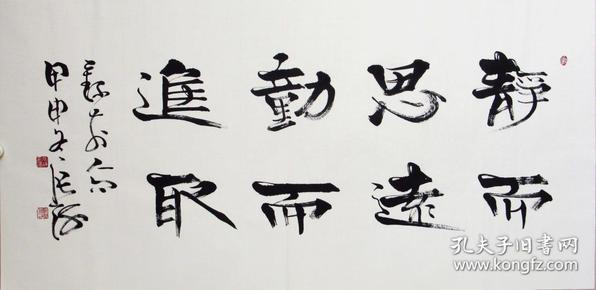 靜而
思遠
動而
進取
甲申冬
孔夫子旧书网
www.kongfz.com